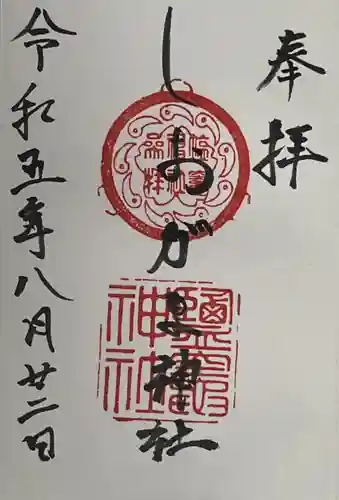 奉拝
しおがま神社
令和五年八月廿二日
鹽竈神社